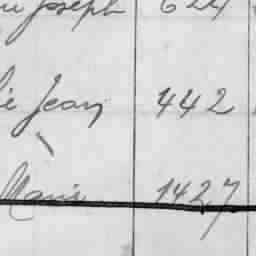 Joseph 624
Jean 442
Marie 1427